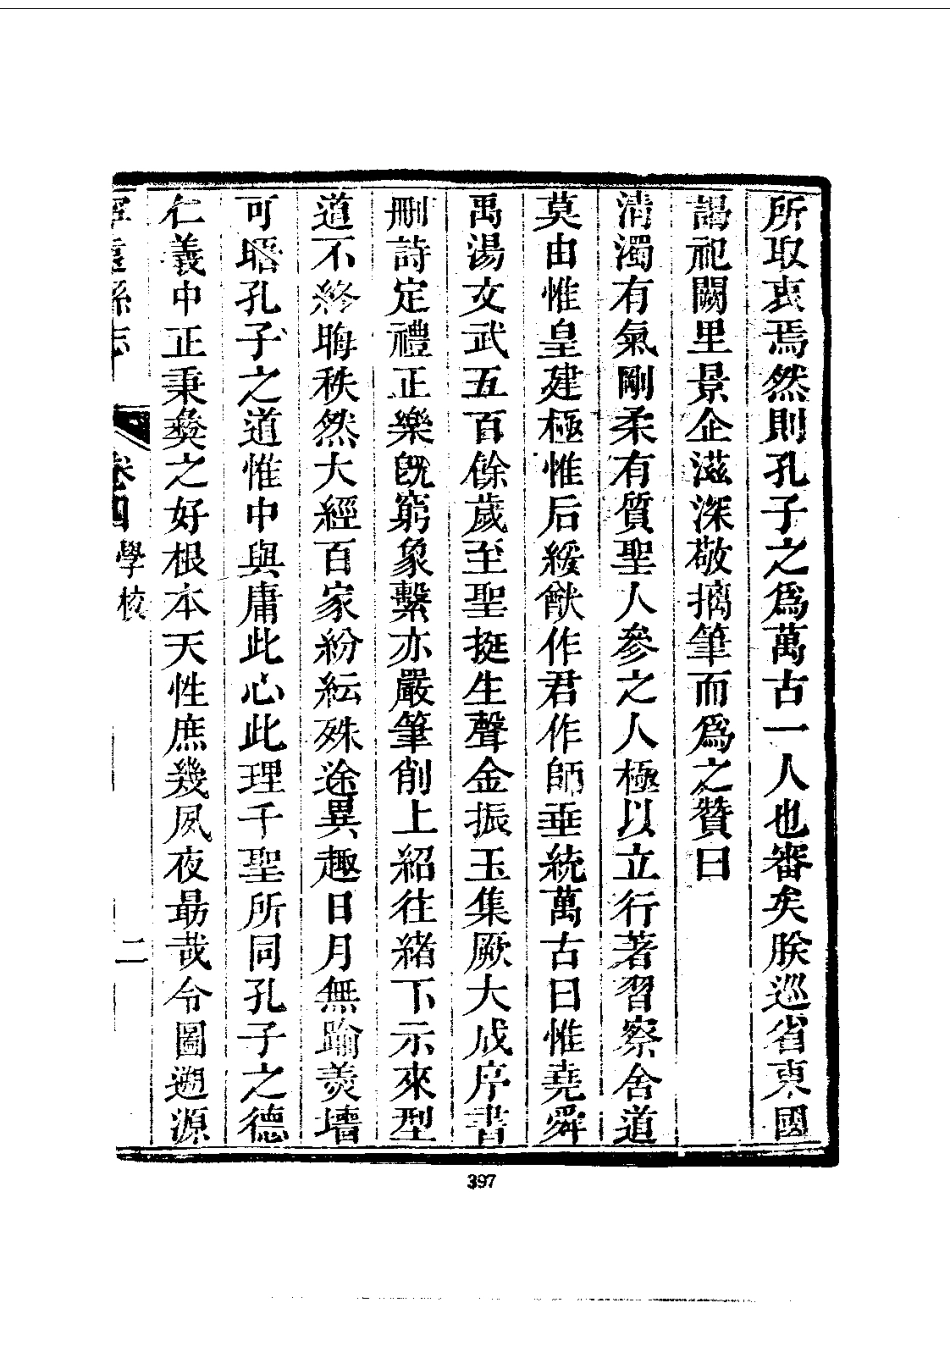 所取衷焉然則孔子之爲萬古一人也審矣朕巡省東國
謁祀闕里景企滋深敬摛筆而爲之贊曰
清濁有氣剛柔有質聖人參之人極以立行著習察舍道
莫由惟皇建極惟后綏猷作君作師垂統萬古曰惟堯舜
禹湯文武五百餘歲至聖挺生聲金振玉集厥大成序書
刪詩定禮正樂旣窮象繫亦嚴筆削上紹往緒下示來型
道不終晦秩然大經百家紛紜殊途異趣日月無踰羹墻
可晤孔子之道惟中與庸此心此理千聖所同孔子之德
仁義中正秉彜之好根本天性庶幾夙夜勗哉令圖遡源
寧遠縣志
卷四
學校
二
397